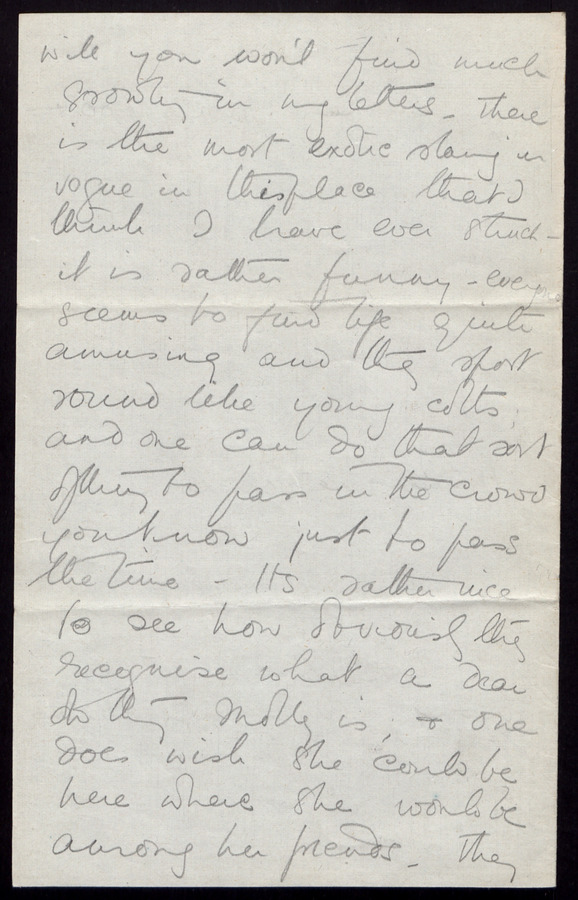 will you won't find much
in my letters - there
is the most exotic slang in
vogue in this place that I
think I have ever struck -
it is rather funny - everyone
seems to find life quite
amusing and they sport
round like young colts,
and one can do that sort
of thing to pass in the crowd
you know just to pass
the time - Its rather nice
to see how obviously they
recognise what a dear
old thing Molly is, & one
does wish she could be
here where she would be
among her friends - they